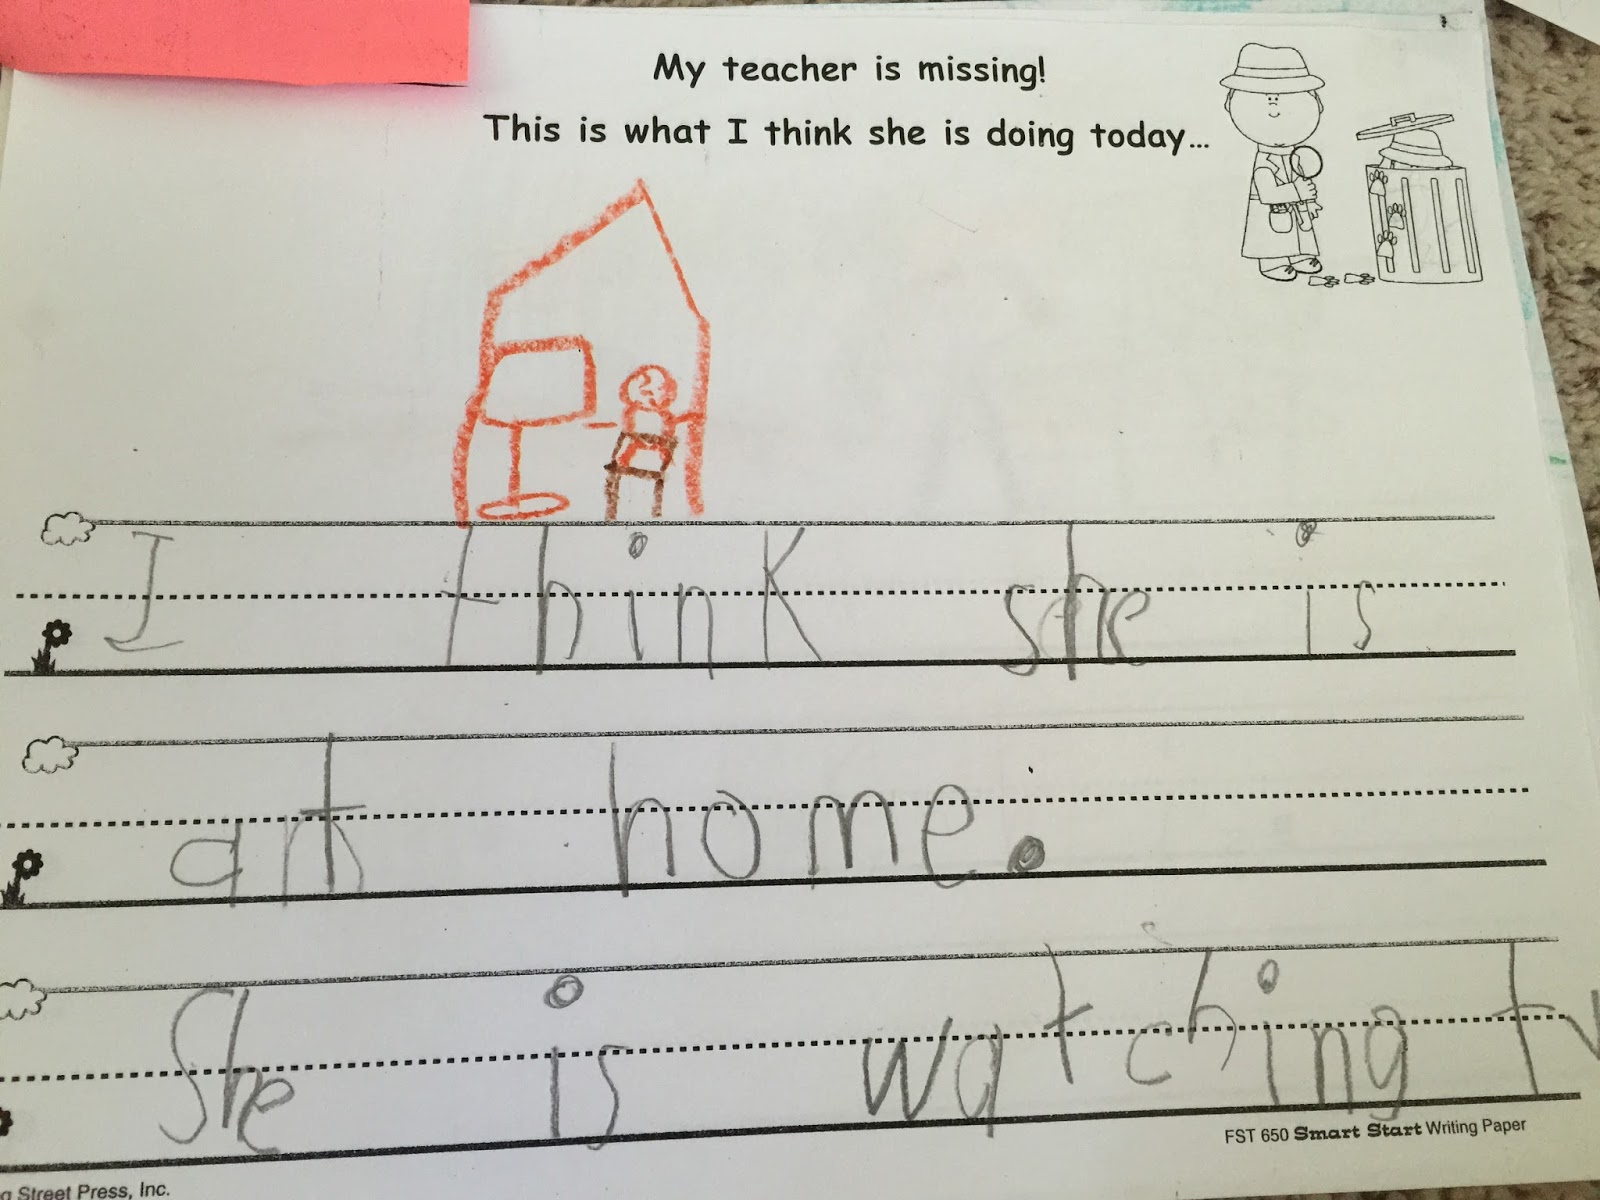 My teacher is missing!
This is what I think she is doing today...
I think she is
at home.
She is watching tv
FST 650 Smart Start Writing Paper
g Street Press, Inc.